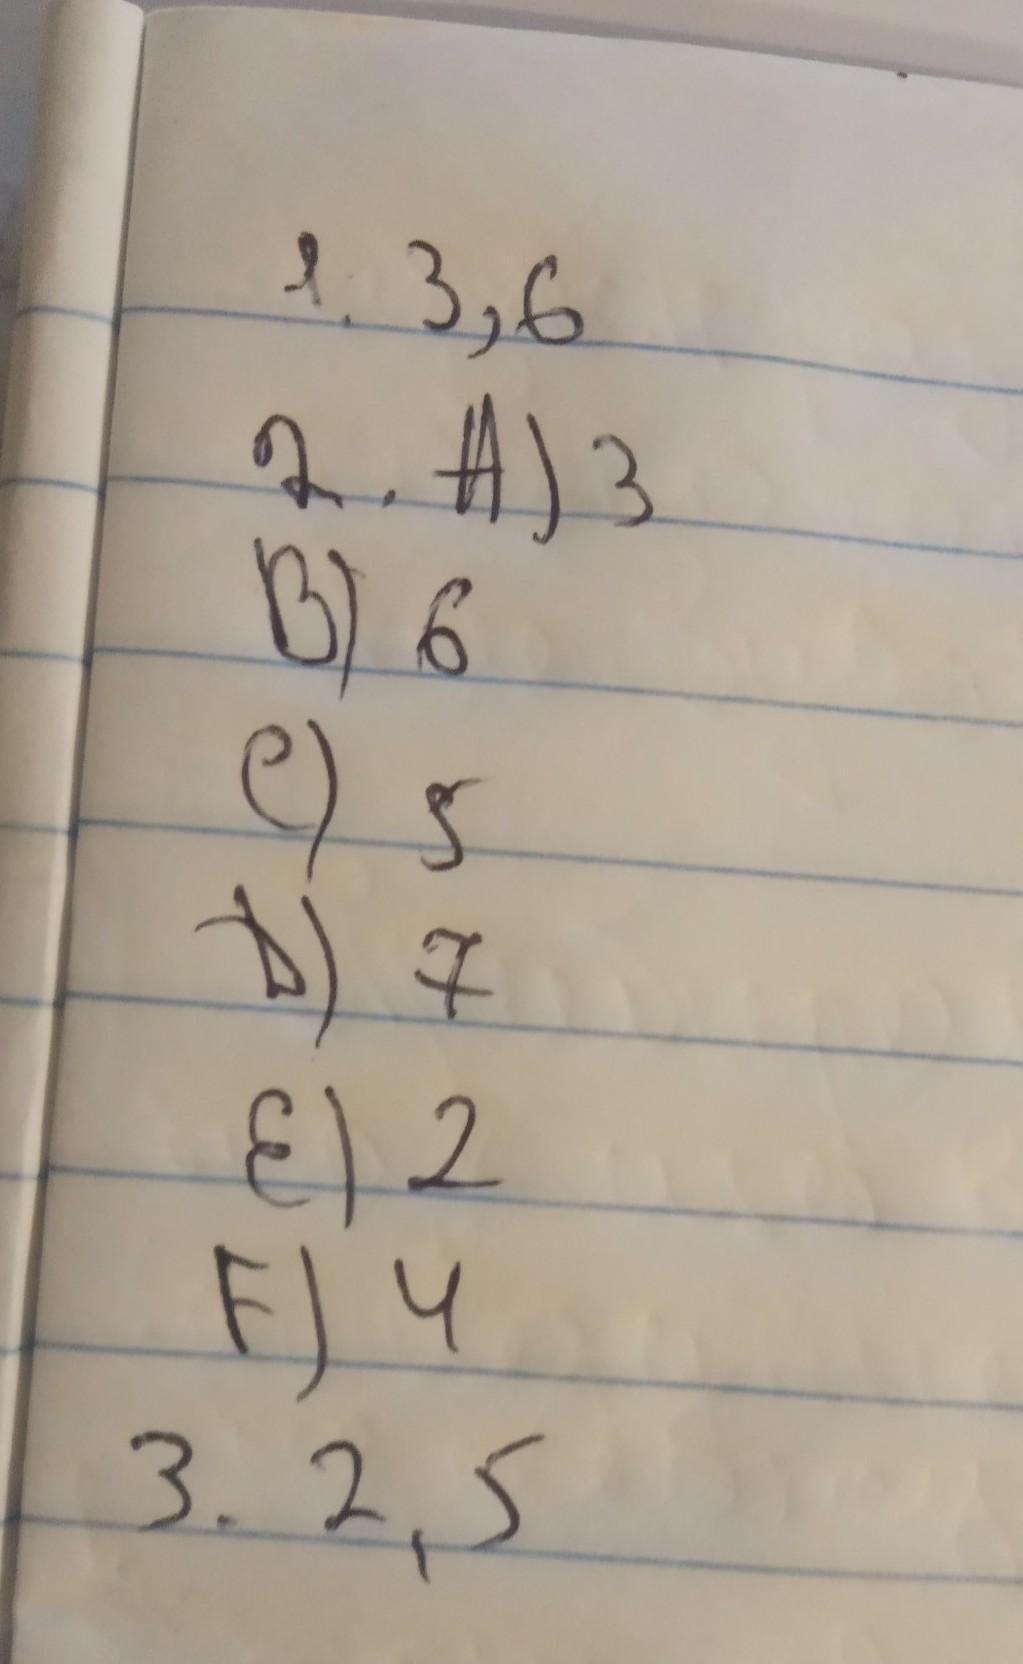 1. 3,6
2. A) 3
B) 6
C) 5
D) 7
E) 2
F) 4
3. 2,5